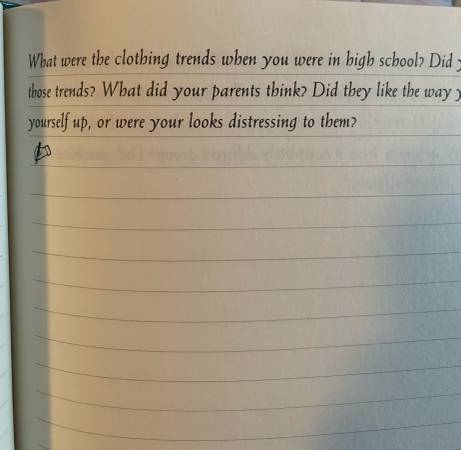 What were the clothing trends when you were in high school? Did
those trends? What did your parents think? Did they like the way
yourself up, or were your looks distressing to them?